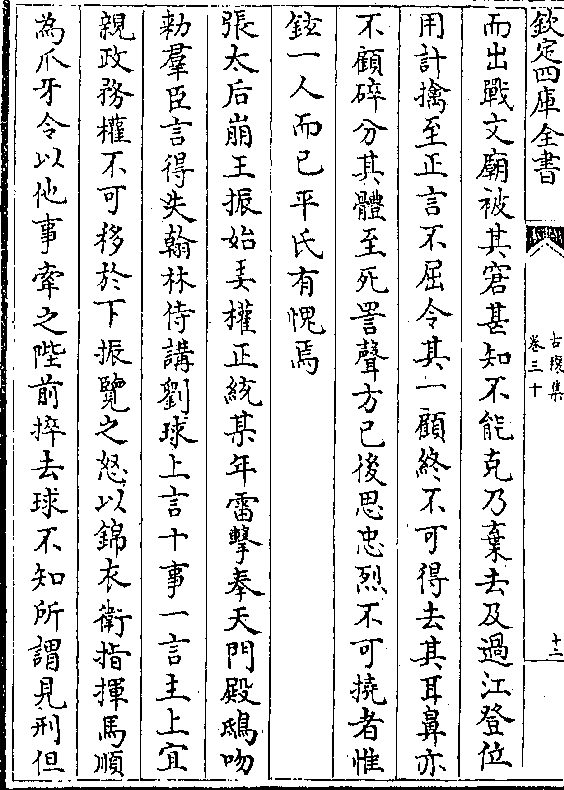 欽定四庫全書
古穰集
卷三十
十二
而出戰文廟被其窘甚知不能克乃棄去及過江登位
用計擒至正言不屈令其一顧終不可得去其耳鼻亦
不顧碎分其體至死詈聲方已後思忠烈不可撓者惟
鉉一人而已平氏有愧焉
張太后崩王振始弄權正統某年雷擊奉天門殿鴟吻
勑羣臣言得失翰林侍講劉球上言十事一言主上宜
親政務權不可移於下振覽之怒以錦衣衛指揮馬順
為爪牙令以他事牽之陛前捽去球不知所謂見刑但